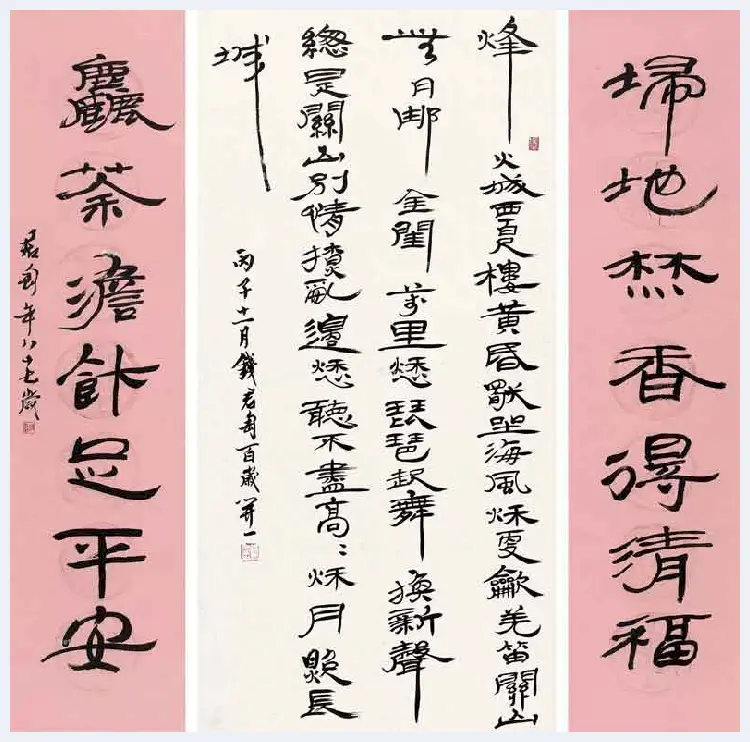 埽地焚香得清福
烽火城西百尺樓黃昏獨坐海風秋更龡羌笛關山
無月那金閨萬里愁琵琶起舞換新聲
總是關山別情撩亂邊愁聽不盡高〻秋月照長
城
丙子十一月錢君匋百歲開一
麤茶澹飰足平安
君匋年八十五歲